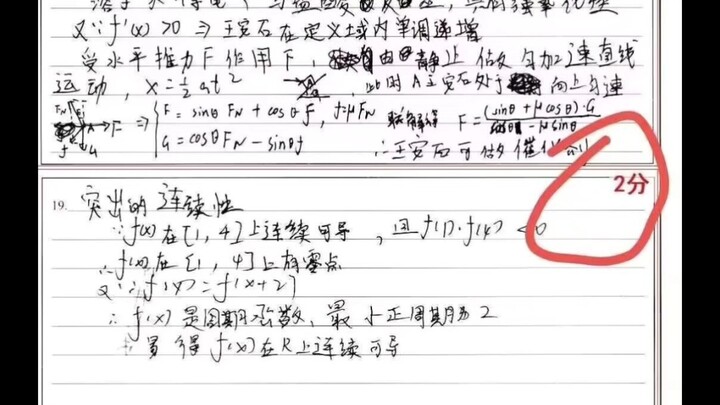 溶于水
又∵f'(x)>0⇒王安石在定义域内单调递增
受水平推力F作用下,由静止做匀加速直线
运动,x=½at²,此时A王安石处于向上匀速
F_N F f G ⇒ { F=sinθF_N+cosθf, f=μF_N 联解得 F=(sinθ+μcosθ)·G/cosθ-μsinθ
G=cosθF_N-sinθf ∴王安石可做催化剂
2分
19. 突出的连续性
∵f(x)在[1,4]上连续可导,且f(1)·f(4)<0
∴f(x)在[1,4]上有零点
又∵f(x)=f(x+2)
∴f(x)是周期函数、最小正周期为2
易得f(x)在R上连续可导